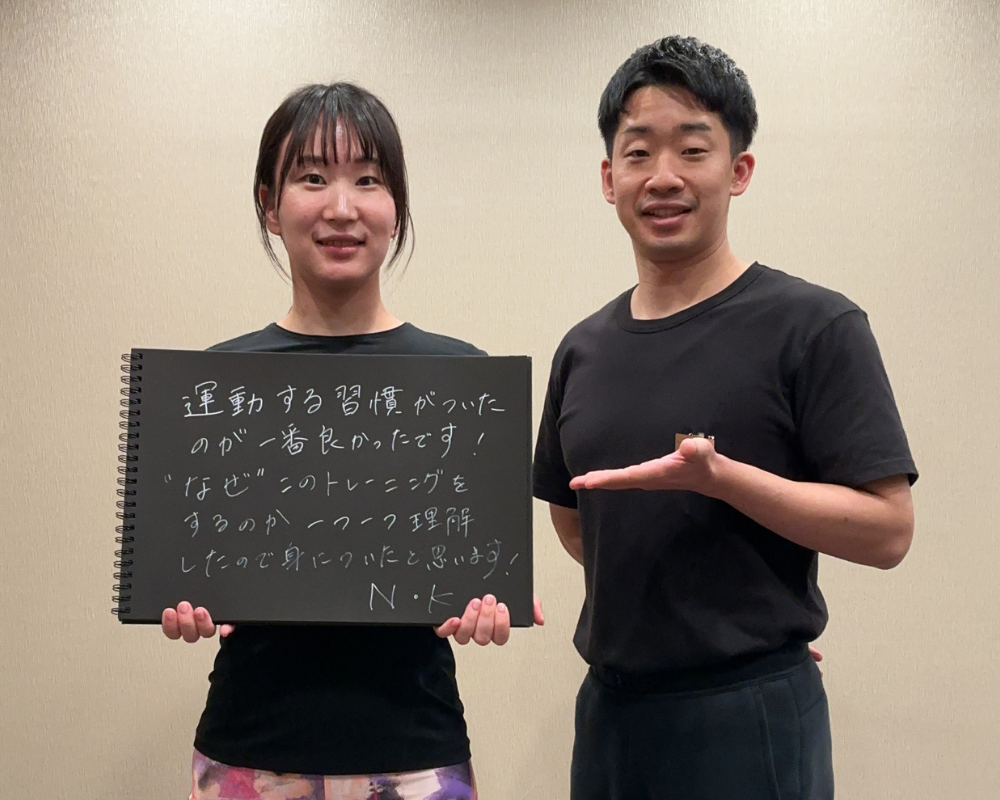 運動する習慣がついた
のが一番良かったです！
"なぜ"このトレーニングを
するのか一つ一つ理解
したので身についたと思います！
N・K